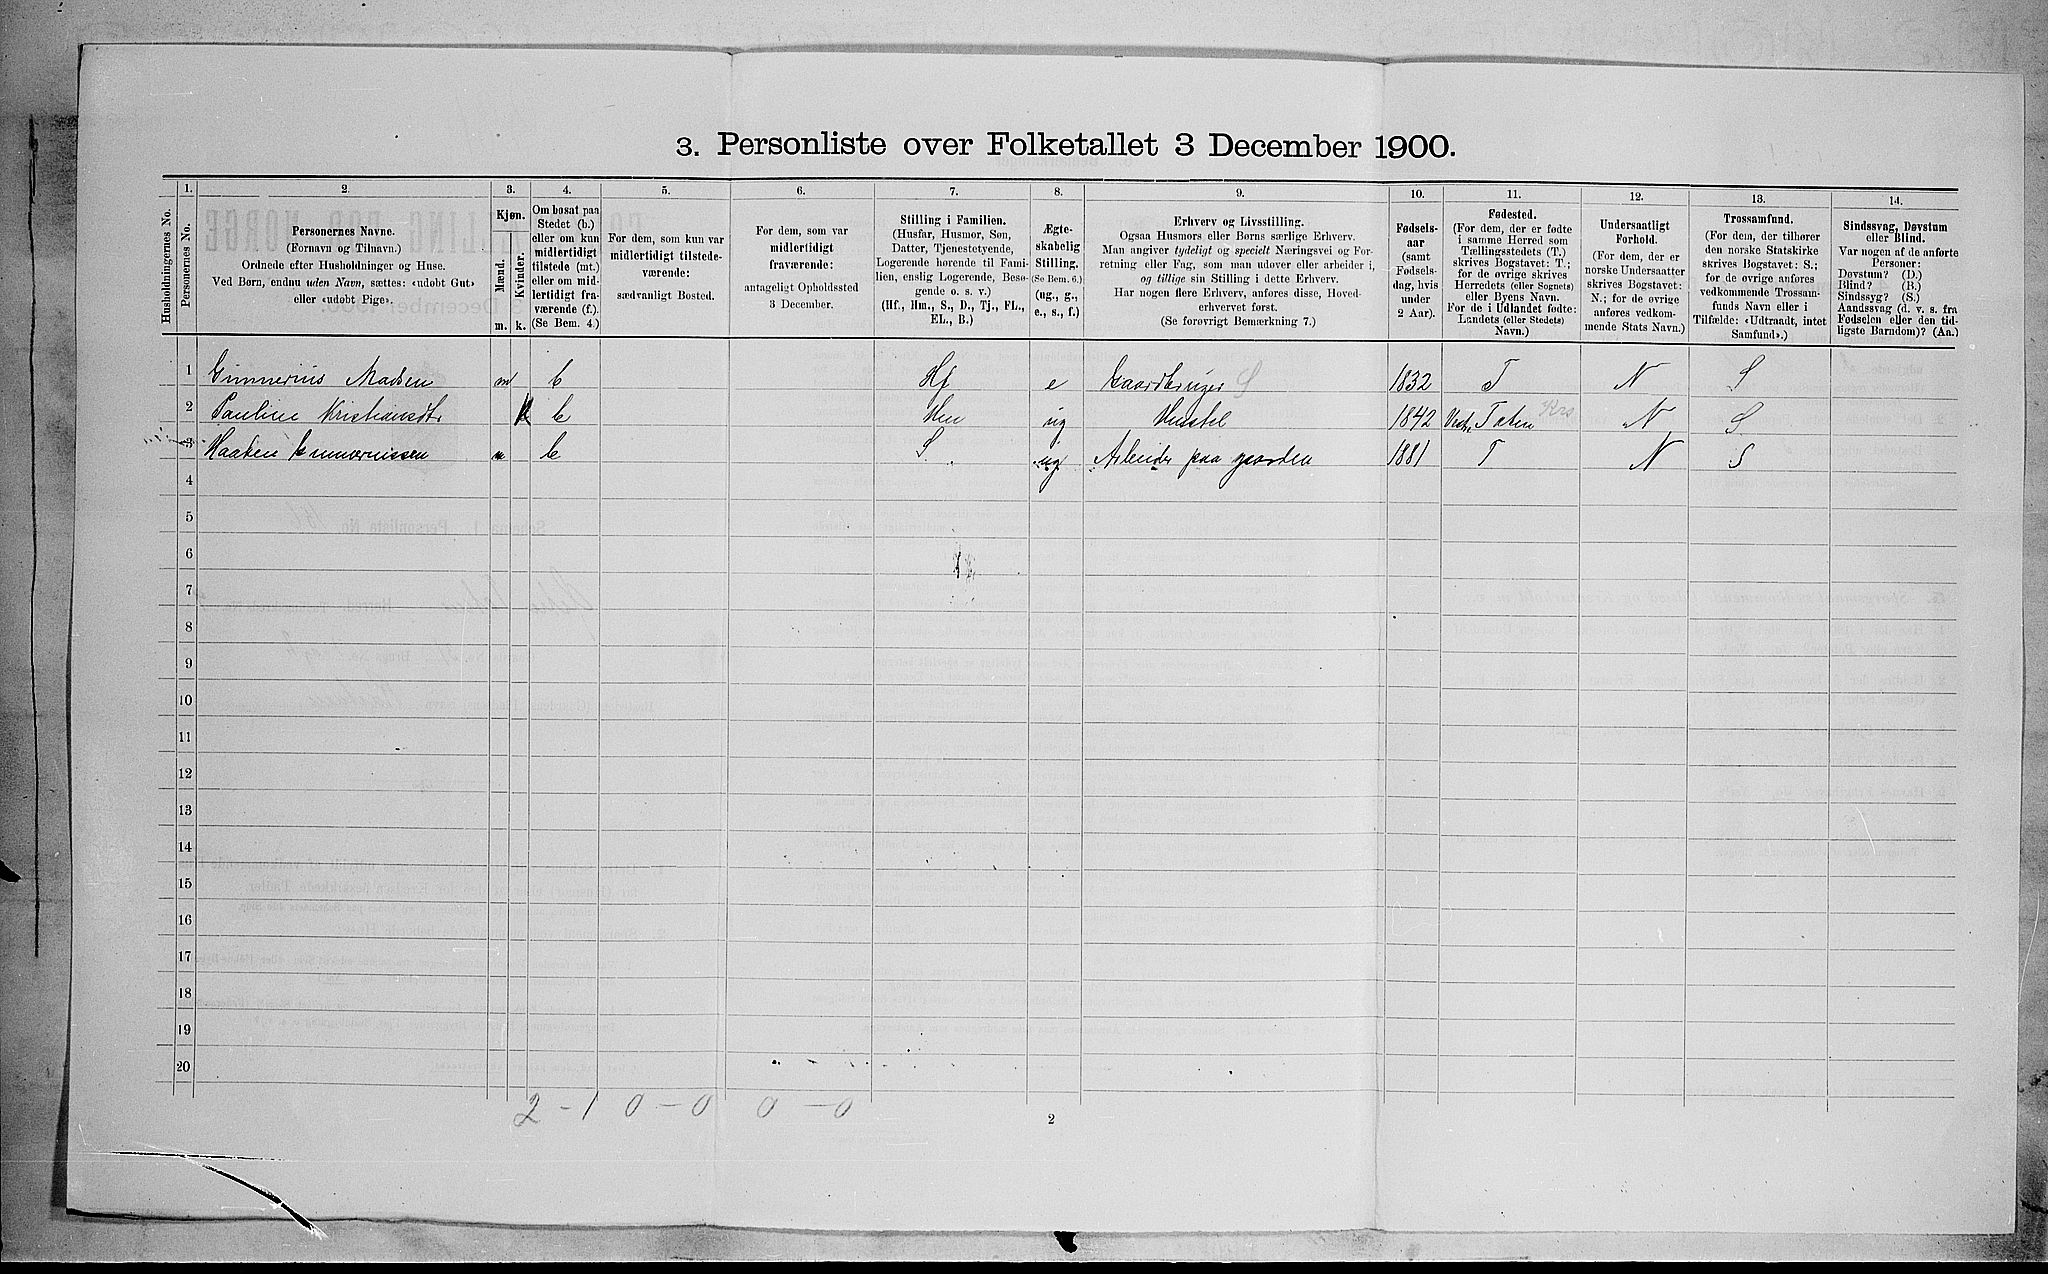 3. Personliste over Folketallet 3 December 1900.
1. 2. 3. 4. 5. 6. 7. 8. 9. 10. 11. 12. 13. 14.
Husholdningernes No.
Personernes No.
Personernes Navne.
(Fornavn og Tilnavn.)
Ordnede efter Husholdninger og Huse.
Ved Børn, endnu uden Navn, sættes: «udobt Gut»
eller «udobt Pige».
Kjøn.
Mænd.
Kvinder.
m. k.
Om bosat paa
Stedet (b.)
eller om kun
midlertidigt
tilstede (mt.)
eller om mid-
lertidigt fra-
værende (f.).
(Se Bem. 4.)
For dem, som kun var
midlertidigt tilstede-
værende:
sædvanligt Bosted.
For dem, som var
midlertidigt
fraværende:
antageligt Opholdssted
3 December.
Stilling i Familien.
(Husfar, Husmor, Søn,
Datter, Tjenestetyende,
Logerende hørende til Fami-
lien, enslig Logerende, Besø-
gende o. s. v.)
(Hf., Hm., S., D., Tj., FL.,
EL., B.)
Ægte-
skabelig
Stilling.
(Se Bem. 6.)
(ug., g.,
e., s., f.)
Erhverv og Livsstilling.
Ogsaa Husmors eller Børns særlige Erhverv.
Man angiver tydeligt og specielt Næringsvei og For-
retning eller Fag, som man udøver eller arbeider i,
og tillige sin Stilling i dette Erhverv.
Har nogen flere Erhverv, anføres disse, Hoved-
erhvervet først.
(Se forøvrigt Bemærkning 7.)
Fødsels-
aar
(samt
Fødsels-
dag, hvis
under
2 Aar).
Fødested.
(For dem, der er fødte
i samme Herred som
Tællingsstedets (T.)
skrives Bogstavet: T.;
for de øvrige skrives
Herredets (eller Sognets)
eller Byens Navn.
For de i Udlandet fødte:
Landets (eller Stedets)
Navn.)
Undersaatligt
Forhold.
(For dem, der er
norske Undersaatter
skrives Bogstavet:
N.; for de øvrige
anføres vedkom-
mende Stats Navn.)
Trossamfund.
(For dem, der tilhører
den norske Statskirke
skrives Bogstavet: S.;
for de øvrige anføres
vedkommende Trossam-
funds Navn eller i
Tilfælde: «Udtraadt, intet
Samfund».)
Sindssvag, Døvstum
eller Blind.
Var nogen af de anførte
Personer:
Døvstum? (D.)
Blind? (B.)
Sindssyg? (S.)
Aandssvag (d. v. s. fra
Fødselen eller den tid-
ligste Barndom)? (Aa.)
1 Gunnerius Madsen m b Hf e Gaardbruger S 1832 T N S
2 Pauline Kristiansdtr k b Hm ug Husstel 1842 Vestr. Toten Krs N S
3 Haaken Gunnerniussen m b S ug Arbeider paa gaarden 1881 T N S
4
5
6
7
8
9
10
11
12
13
14
15
16
17
18
19
20
2 - 1 0 - 0 0 - 0
2